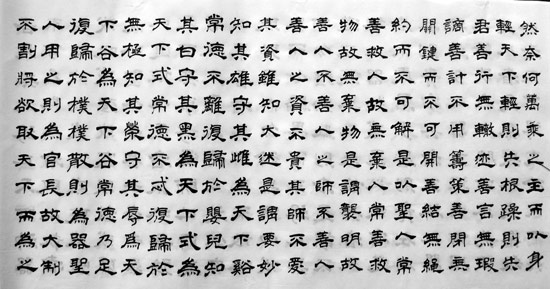 然奈何萬乘之主而以身
輕天下輕則失根躁則失
君善行無轍迹善言無瑕
謫善計不用籌策善閉無
關鍵而不可開善結無繩
約而不可解是以聖人常
善救人故無棄人常善救
物故無棄物是謂襲明故
善人不善人之師不善人
善人之資不貴其師不愛
其資雖知大迷是謂要妙
知其雄守其雌為天下谿
常德不離復歸於嬰兒知
其白守其黑為天下式為
天下式常德不忒復歸於
無極知其榮守其辱為天
下谷為天下谷常德乃足
復歸於樸樸散則為器聖
人用之則為官長故大制
不割將欲取天下而為之